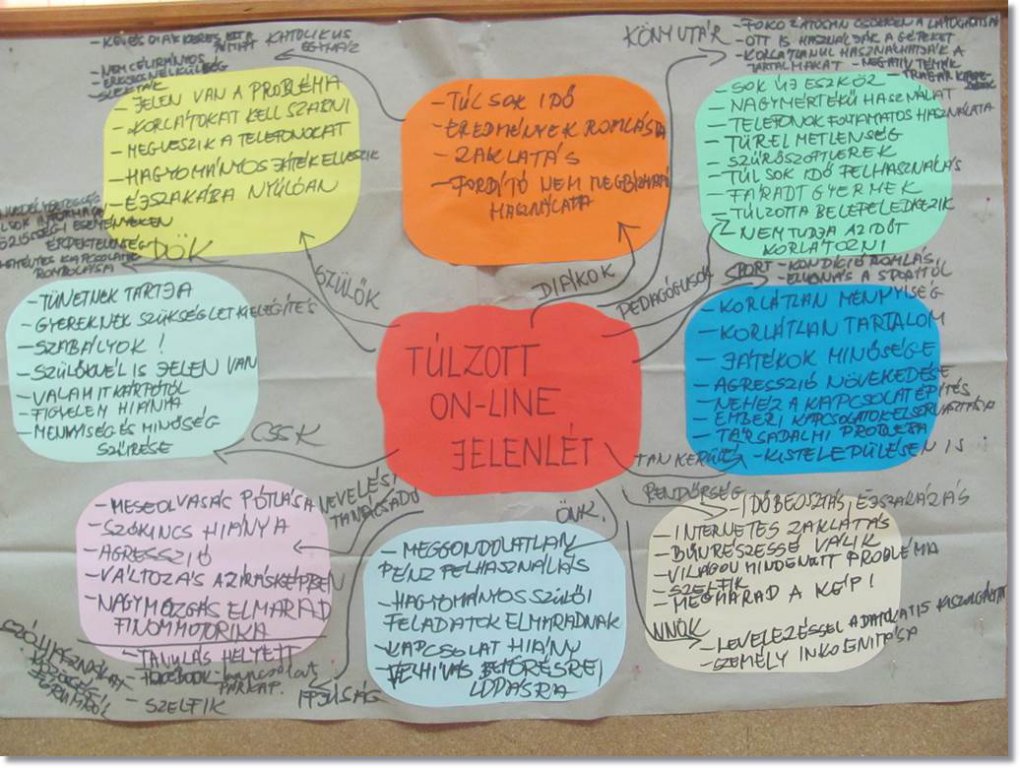 - KEVÉS DIÁK KERES
KATOLIKUS
EGYHÁZ
- NEM CÉLIRÁNYOS
- JELEN VAN A PROBLÉMA
- KORLÁTOKAT KELL SZABNI
- MEGVESZIK A TELEFONOKAT
- HAGYOMÁNYOS JÁTÉK ELVESZIK
- ÉJSZAKÁBA NYÚLÓAN
SZÜLŐK
- TÚL SOK IDŐ
- EREDMÉNYEK ROMLÁSA
- ZAKLATÁS
- FORDÍTÓ NEM MEGBÍZHATÓ
HASZNÁLATA
DIÁKOK
KÖNYVTÁR
- FOKOZATOSAN CSÖKKEN A LÁTOGATOTTSÁG
- OTT IS HASZNÁLJÁK A GÉPEKET
- KORLÁTLANUL HASZNÁLHATJÁK A
TARTALMAKAT - NEGATÍV TÉMÁK
- SOK ÚJ ESZKÖZ
- NAGYMÉRTÉKŰ HASZNÁLAT
- TELEFONOK FOLYAMATOS HASZNÁLATA
- TÜRELMETLENSÉG
- SZŰRŐSZOFTVEREK
- TÚL SOK IDŐ FELHASZNÁLÁS
- FÁRADT GYERMEK
- TÚLZOTTA BELEFELEDKEZIK
- NEM TUDJA AZ IDŐT
KORLÁTOZNI
PEDAGÓGUSOK
KÖZÖSSÉGI ESEMÉNYEKEN
ÉRDEKTELENSÉG
KAPCSOLATOK
ROMBOLÁSA
DÖK
- TÜNETNEK TARTJA
- GYEREKNEK SZÜKSÉGLETKIELÉGÍTÉS
- SZABÁLYOK !
- SZÜLŐKNÉL IS JELEN VAN
- VALAMIT KÁRPÓTOL
- FIGYELEM HIÁNYA
- MENNYISÉG ÉS MINŐSÉG
SZŰRÉSE
CSSK
TÚLZOTT
ON-LINE
JELENLÉT
SPORT - KONDÍCIÓ ROMLÁS
- ELVONÁS A SPORTTÓL
- KORLÁTLAN MENNYISÉG
- KORLÁTLAN TARTALOM
- JÁTÉKOK MINŐSÉGE
- AGRESSZIÓ NÖVEKEDÉSE
- NEHÉZ A KAPCSOLATÉPÍTÉS
- EMBERI KAPCSOLATOK ELSORVASZTÁSA
- TÁRSADALMI PROBLÉMA
- KISTELEPÜLÉSEN IS
TANKERÜLET
- MESEOLVASÁS PÓTLÁSA
- SZÓKINCS HIÁNYA
- AGRESSZIÓ
- VÁLTOZÁS AZ ÍRÁSKÉPBEN
- NAGYMOZGÁS ELMARAD
FINOMMOTORIKA
NEVELÉSI
TANÁCSADÓ
- TANULÁS HELYETT
FACEBOOK - kapcsolat
PÁRKAP.
- SZELFIK
IFJÚSÁG
ÖNK.
- MEGGONDOLATLAN
PÉNZ FELHASZNÁLÁS
- HAGYOMÁNYOS SZÜLŐI
FELADATOK ELMARADNAK
- KAPCSOLAT HIÁNY
- FELHÍVÁS BETÖRÉSRE/
LOPÁSRA
RENDŐRSÉG
- IDŐBEOSZTÁS, ÉJSZAKÁZÁS
- INTERNETES ZAKLATÁS
- BŰNRÉSZESSÉ VÁLIK
- VILÁGON MINDENÜTT PROBLÉMA
- SZELFIK
- MEGMARAD A KÉP !
NNÖK
- LEVELEZÉSSEL ADATOKAT IS KISZOLGÁLTAT
- SZEMÉLY INKOGNITÁSA